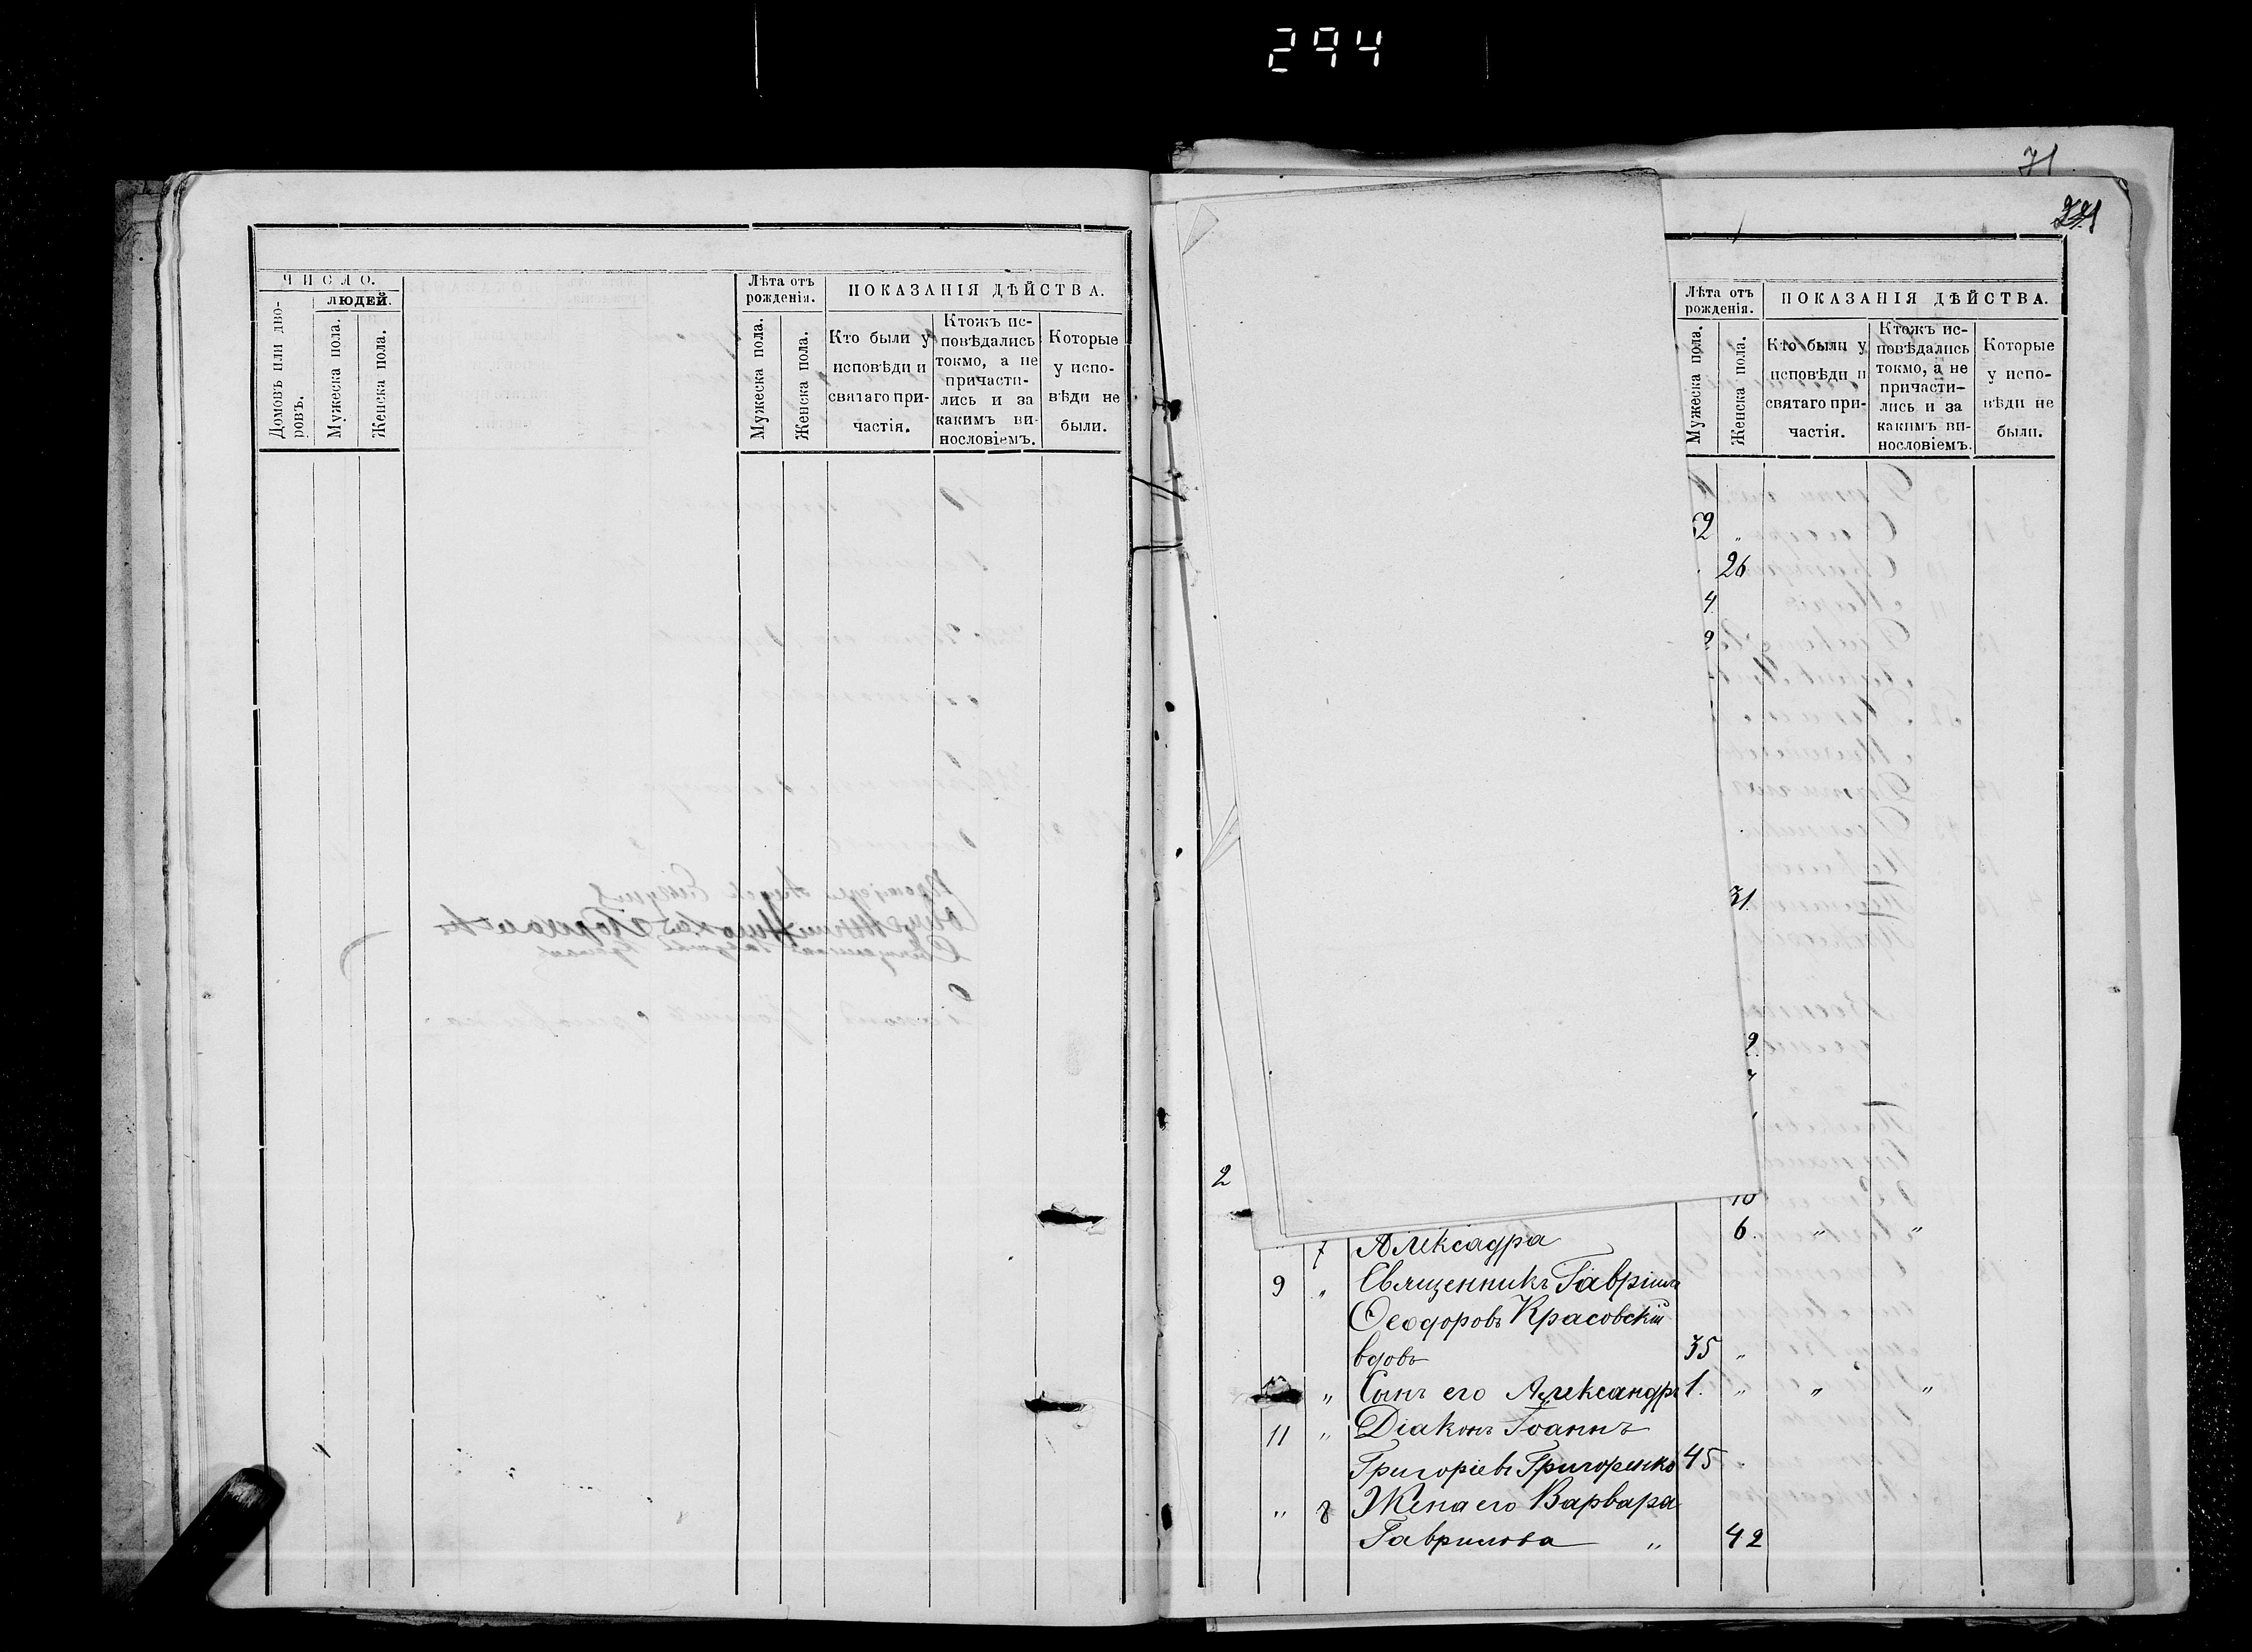 294
71
ЧИСЛО.
ЛЮДЕЙ.
Домовъ или дво-
ровъ.
Мужеска пола.
Женска пола.
Лѣта отъ
рожденія.
Мужеска пола.
Женска пола.
ПОКАЗАНІЯ ДѢЙСТВА.
Кто были у
исповѣди и
святаго при-
частія.
Ктожъ ис-
повѣдались
токмо, а не
причасти-
лись и за
какимъ ви-
нословіемъ.
Которые
у испо-
вѣди не
были.
Лѣта отъ
рожденія.
Мужеска пола.
Женска пола.
ПОКАЗАНІЯ ДѢЙСТВА.
Кто были у
исповѣди и
святаго при-
частія.
Ктожъ ис-
повѣдались
токмо, а не
причасти-
лись и за
какимъ ви-
нословіемъ.
Которые
у испо-
вѣди не
были.
2 „
26
4
2
31
2
2
10
7 Алексадра 6. „ „
9 „ Священникъ Гавріилъ
Ѳеодоровъ Красовскій
вдовъ 35 „
„ Сынъ его Александръ 1. „ „ „
11 „ Діаконъ Іоаннъ
Григоріевъ Григоренко 45 „
„ 8 Жена его Варвара
Гаврилова „ 42